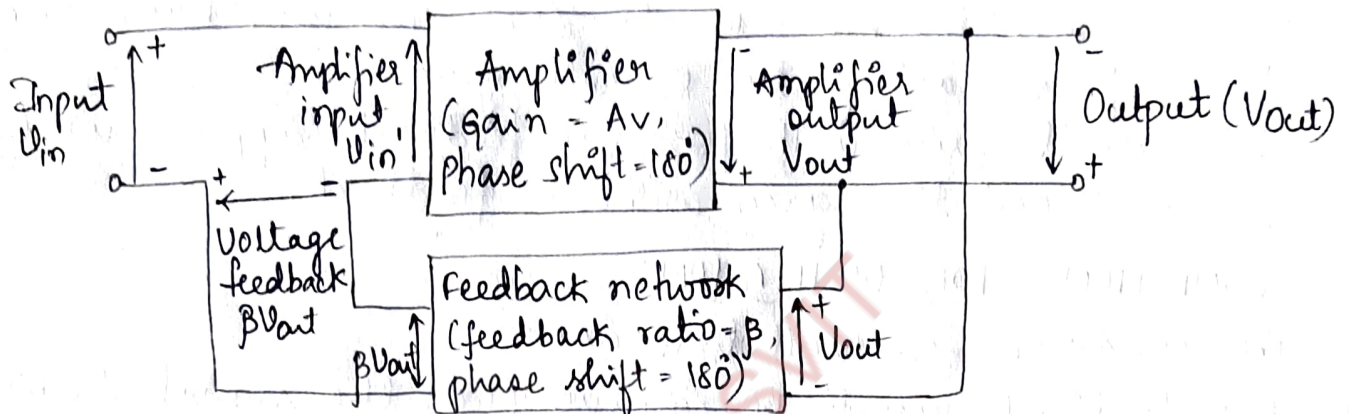 Input
Vin
+
-
Amplifier
input
Vin'
Amplifier
(Gain = Av,
Phase shift = 180°)
-
+
Amplifier
output
Vout
-
+
Output (Vout)
+
=
Voltage
feedback
βVout
βVout
Feedback network
(feedback ratio = β,
phase shift = 180°)
+
Vout
-
SVIT